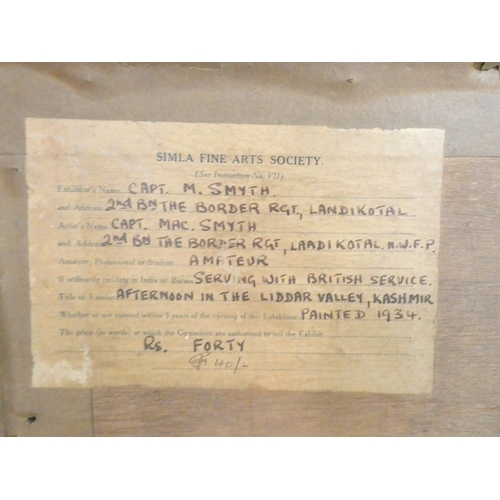 SIMLA FINE ARTS SOCIETY.
(See Instruction No. VII)
Exhibitor's Name CAPT. M. SMYTH.
and Address 2nd BN THE BORDER RGT, LANDIKOTAL
Artist's Name CAPT. MAC. SMYTH
and Address 2nd BN THE BORDER RGT, LAADIKOTAL. N.W.F.P.
Amateur, Professional or Student AMATEUR
If ordinarily residing in India or Burma SERVING WITH BRITISH SERVICE.
Title of Exhibit AFTERNOON IN THE LIDDAR VALLEY, KASHMIR
Whether or not painted within 3 years of the opening of this Exhibition PAINTED 1934.
The price (in words) at which the Committee are authorised to sell the Exhibit
Rs. FORTY
40/-